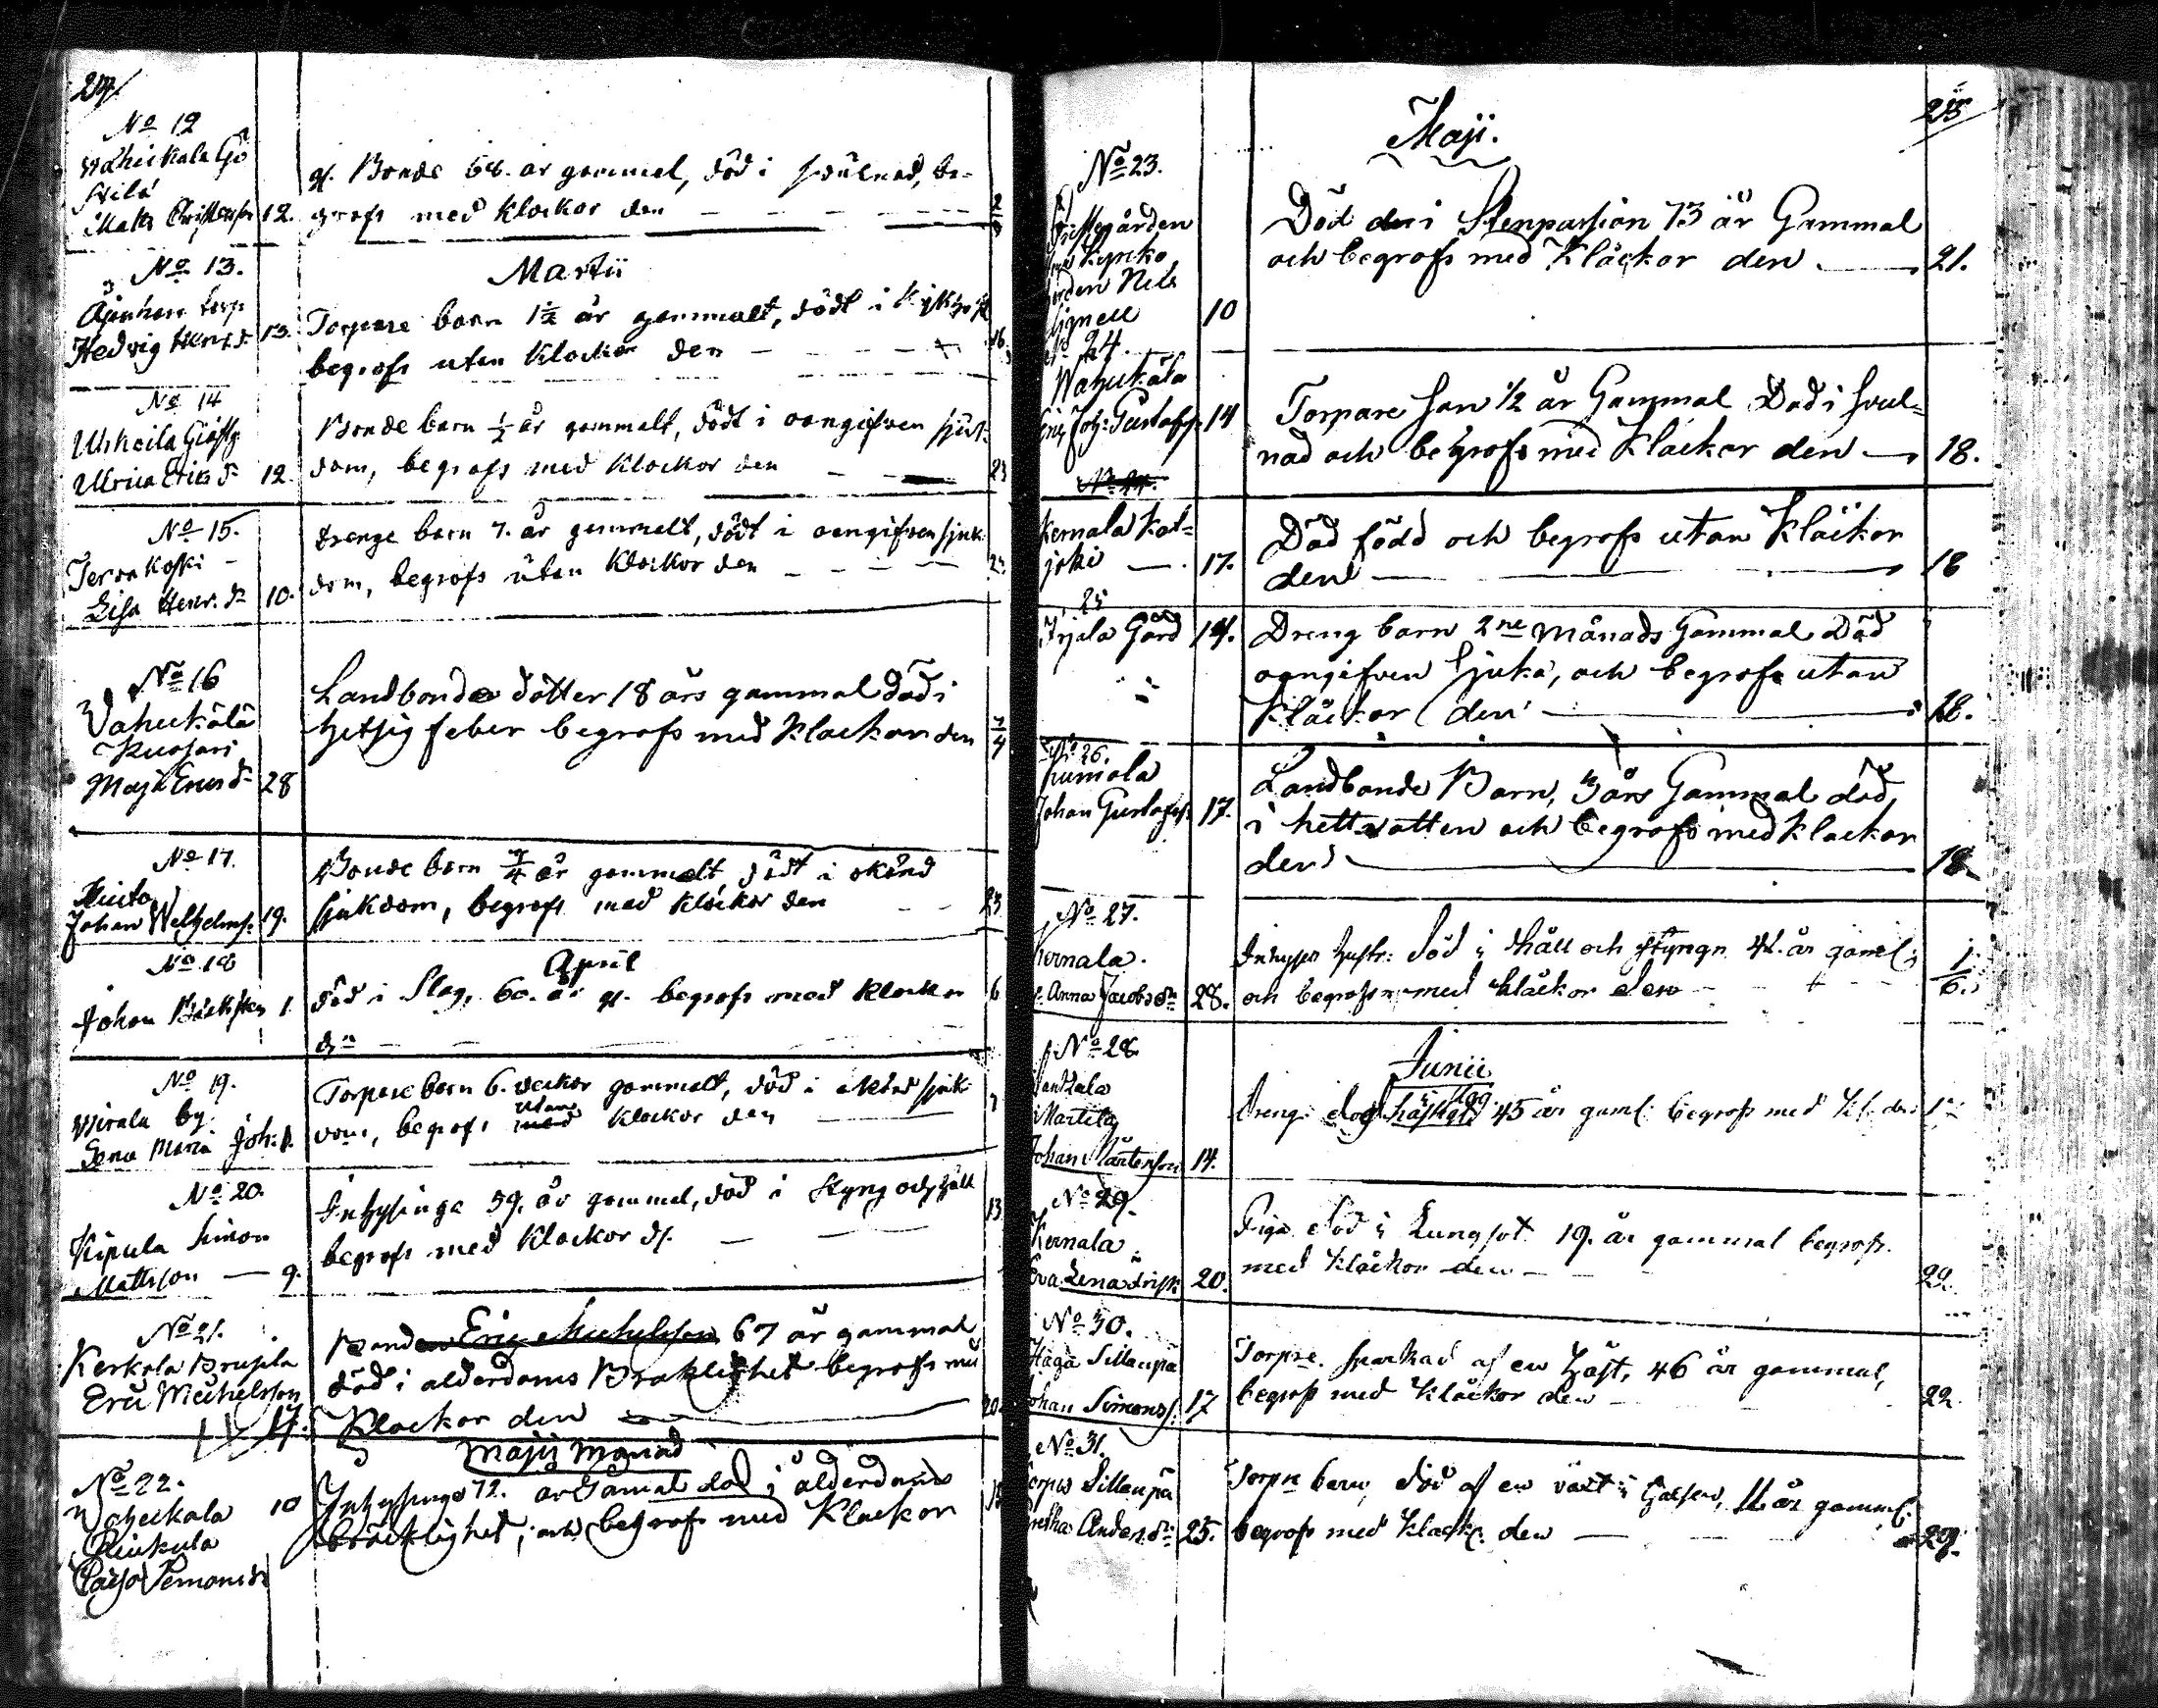 214
No 12
Mats Christersson 12.
gl. Bonde 68. år gammal, död i svulnad, be-
grofs med klockor den 2/3
No 13.
Martii
Hedvig Henr. dr 13.
Torpare barn 1 1/2 år gammalt, dödt i kikho
begrofs utan klockor den 16.
No 14
Ulrica Eriks dr 12.
Bonde barn 1/2 år gammalt, dödt i oangifven sjuk-
dom, begrofs med klockor den 23
No 15.
Tervakoski
Lisa Henr. dr 10.
Drenge barn 7. år gammalt, dödt i oangifven sjuk-
dom, begrofs utan klockor den
No 16
Maja Ericsdr 28
Landbonde dotter 18 års gammal död i
hetsig feber begrofs med klockor den
No 17.
Johan Welhelms. 19.
Bonde barn 3/4 år gammalt dödt i okänd
sjukdom, begrofs med klockor den 23
No 18
April
Johan 1.
död i Slag, 60. år gl. begrofs med klockor 6
dn
No 19.
Wirala by
Torpare barn 6. veckor gammalt, död i okänd sjuk-
dom, begrofs utan klockor den 7
No 20.
Simon
Mattsson 9.
Inhysinge 59. år gammal, död i styng och håll
begrofs med klockor d. 13
No 21.
Kerkola
Eric Michelsson
17.
Bonden Eric Michelsson 67 år gammal
död i alderdoms Bräklighet begrofs med
Klockor den 20
Majij Månad
No 22.
10
Inhysinge 72. år Gamal död i ålderdoms
bräcklighet, och begrofs med Klockor
215
Maji.
No 23.
Nils
10
Död den i Stenpassion 73 år Gammal
och begrofs med Klåckor den 21.
24.
Joh: Gustafs. 14
Torpare son 1/2 år Gammal Död i svul-
nad och begrofs med Klåckor den 18.
Kernala
joki 17.
Död född och begrofs utan Klåckor
den 18
25
Irjala Gård 14.
Dreng barn 2ne månads Gammal Död
oangifven Sjuka, och begrofs utan
Klåckor den 28.
No 26.
Johan Gustafss. 17.
Landbonde Barn, 3 års Gammal död,
i hett vatten och begrofs med klockor
den 18
No 27.
Kernala.
Anna Jacobs dr 28.
Inhyses hustr: död i Håll och styngn 42. år gamel;
och begrofs med klåckor den 1/6.
No 28.
Junii
Marttila
Johan Mårtenson 14.
Dreng: 45 år gaml: begrofs med kl. den
No 29.
Kernala.
Eva Lena 20.
Piga död i Lungsot 19. år gammal begrofs.
med klåckor den 22.
No 30.
Haga Sillanpä
Johan Simonss. 17
Torpre. sparkad af en häst, 46 år gammal,
begrofs med klåckor den 22.
No 31.
Sillanpä
Anders. dr 25.
Torpre barn, död af en växt i halsen, 11. år gamml.
begrofs med klåck: den 29.